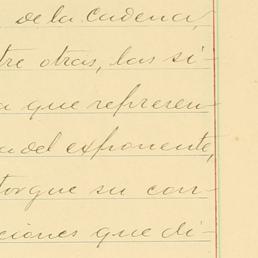 de la cadena,
tre otras, las si-
a que represen-
a del exponente,
torgue su con-
ciones que di-